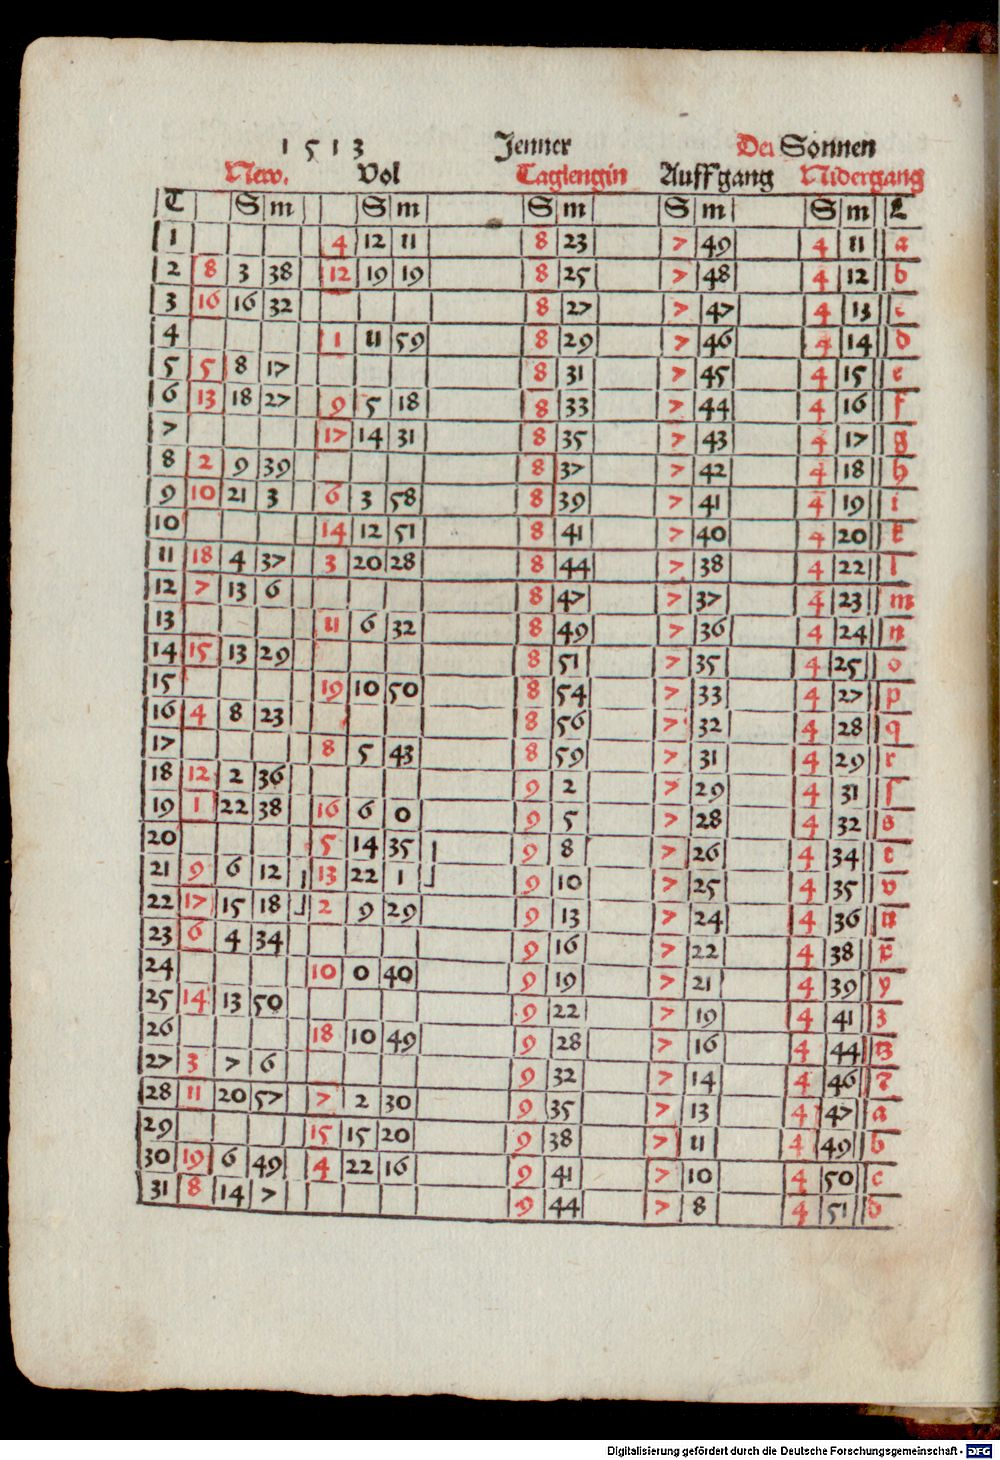 1513 Jenner Der Sonnen
New. Vol Taglengin Auffgang Nidergang
T S m S m S m S m S m L
1 4 12 11 8 23 7 49 4 11 a
2 8 3 38 12 19 19 8 25 7 48 4 12 b
3 16 16 32 8 27 7 47 4 13 c
4 1 11 59 8 29 7 46 4 14 d
5 5 8 17 8 31 7 45 4 15 e
6 13 18 27 9 5 18 8 33 7 44 4 16 f
7 17 14 31 8 35 7 43 4 17 g
8 2 9 39 8 37 7 42 4 18 h
9 10 21 3 6 3 58 8 39 7 41 4 19 i
10 14 12 51 8 41 7 40 4 20 k
11 18 4 37 3 20 28 8 44 7 38 4 22 l
12 7 13 6 8 47 7 37 4 23 m
13 11 6 32 8 49 7 36 4 24 n
14 15 13 29 8 51 7 35 4 25 o
15 19 10 50 8 54 7 33 4 27 p
16 4 8 23 8 56 7 32 4 28 q
17 8 5 43 8 59 7 31 4 29 r
18 12 2 36 9 2 7 29 4 31 ſ
19 1 22 38 16 6 0 9 5 7 28 4 32 s
20 5 14 35 9 8 7 26 4 34 t
21 9 6 12 13 22 1 9 10 7 25 4 35 v
22 17 15 18 2 9 29 9 13 7 24 4 36 u
23 6 4 34 9 16 7 22 4 38 x
24 10 0 40 9 19 7 21 4 39 y
25 14 13 50 9 22 7 19 4 41 z
26 18 10 49 9 28 7 16 4 44
27 3 7 6 9 32 7 14 4 46
28 11 20 57 7 2 30 9 35 7 13 4 47 a
29 15 15 20 9 38 7 11 4 49 b
30 19 6 49 4 22 16 9 41 7 10 4 50 c
31 8 14 7 9 44 7 8 4 51 d
Digitalisierung gefördert durch die Deutsche Forschungsgemeinschaft - DFG